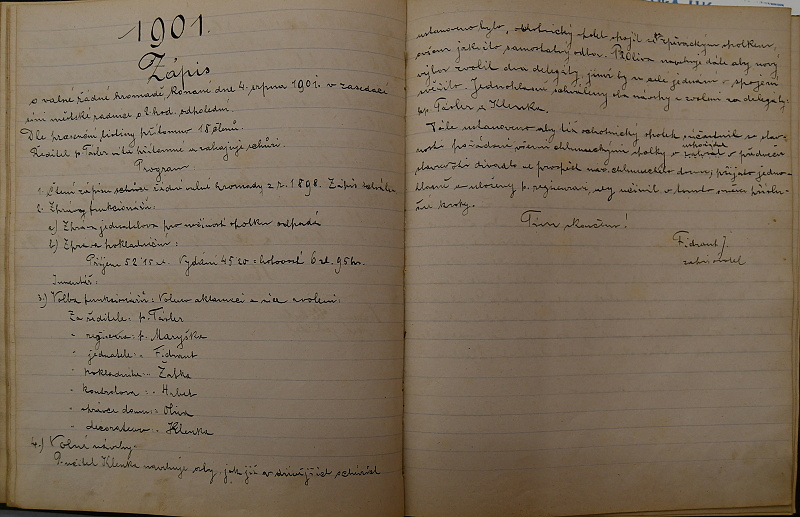 1901.
Zápis
o valné řádné hromadě, konané dne 4. srpna 1901. v zasedací
síni městské radnice o 2 hod. odpolední.
Dle presenční listiny přítomno 18 členů.
Ředitel p. Tásler vítá přítomné a zahajuje schůzi.
Program
1. Čtení zápisu schůze řádné valné hromady z r. 1898. Zápis
2. Zprávy funkcionářů:
a) Zpráva jednatelova pro nečinnost spolku odpadá
b) Zpráva pokladníkova:
Příjem 52·15 zl. Vydání 45·20 = hotovost 6 zl. 95 kr.
Inventář:
3.) Volba funkcionářů: Voleno aklamací a sice zvoleni:
Za ředitele: p. Tásler
" regisseura: p. Maryška
" jednatele: " Fidrant
" pokladníka: " Žabka
" kontrolora: " Hubet
" správce domu: " Oliva
" decorateura: " Klenka
4.) Volné návrhy.
P. učitel Klenka navrhuje, aby, jak již v dřívějších schůzích
ustanoveno bylo, ochotnický spolek spojil se zpěváckým spolkem,
ovšem jakožto samostatný odbor. P. Oliva navrhuje dále aby nový
výbor zvolil dva delegáty, jimž by se dále jednáno o spojení
svěřilo. Jednohlasně schváleny oba návrhy a zvoleni za delegáty:
pp. Tásler a Klenka.
Dále ustanoveno aby též ochotnický spolek súčastnil se slav-
nosti pořádané všemi chlumeckými spolky v předvečer
slavnosti divadlo ve prospěch nár. chlumeckého domu; přijato jedno-
hlasně a uloženy p. regisseurovi, aby učinil v tomto směru přísluš-
né kroky.
Tím skončeno!
Fidrant J.
zapisovatel